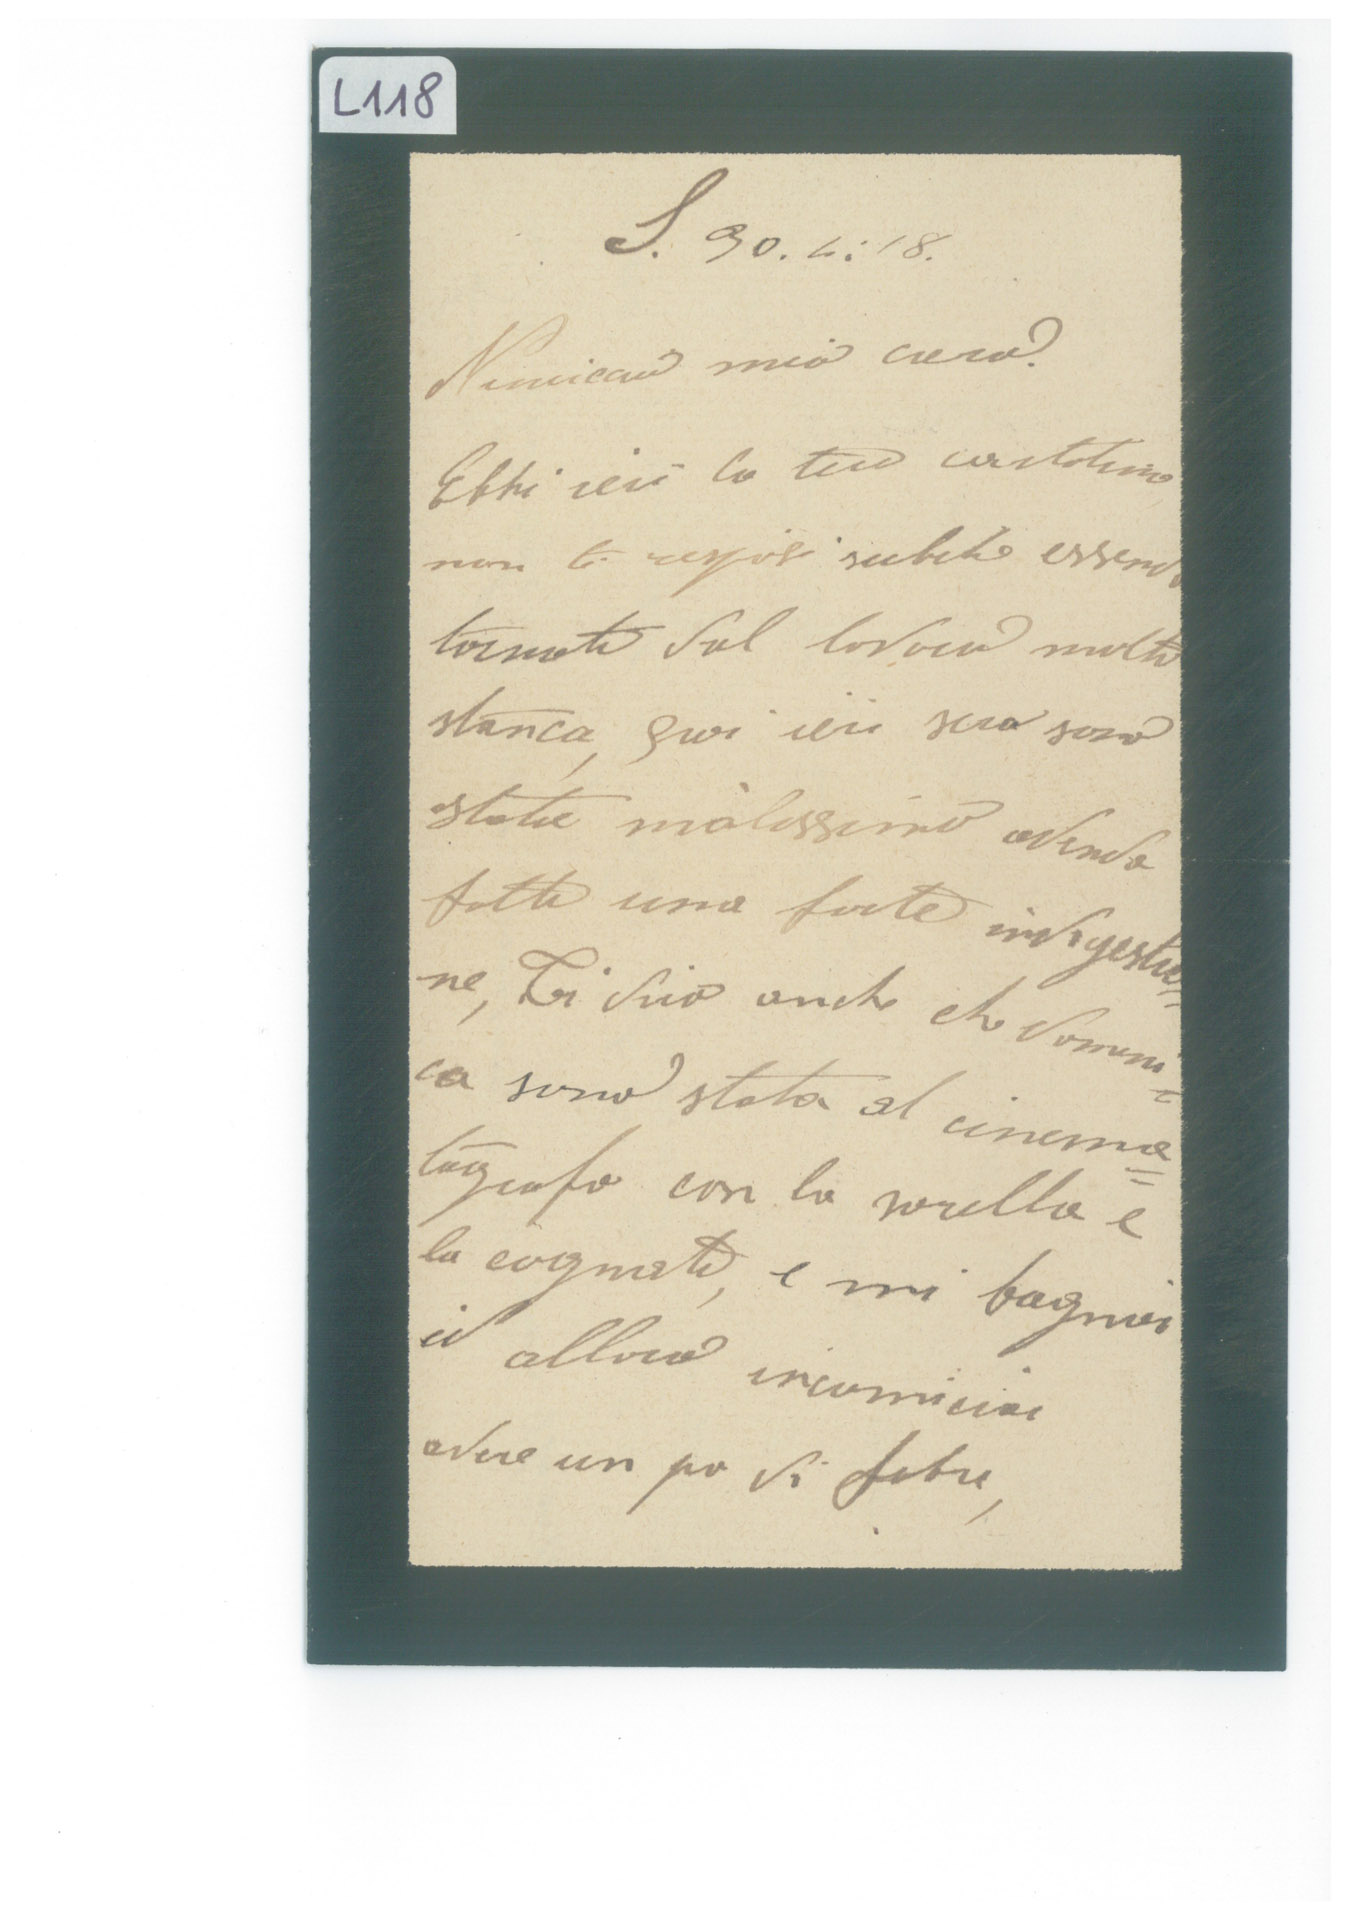 L118
S. 30. 4. 18.
mio caro!
Ebbi ieri la tua cartolina,
non ti risposi subito essendo
tornata dal lavoro molto
stanca, qui ieri sera sono
stata malissimo avendo
fatto una forte indigestio=
ne, Ti dirò anche che domeni=
ca sono stata al cinema=
tografo con la sorella e
la cognata, e mi bagnai
allora incomiciai
avere un po di febre,